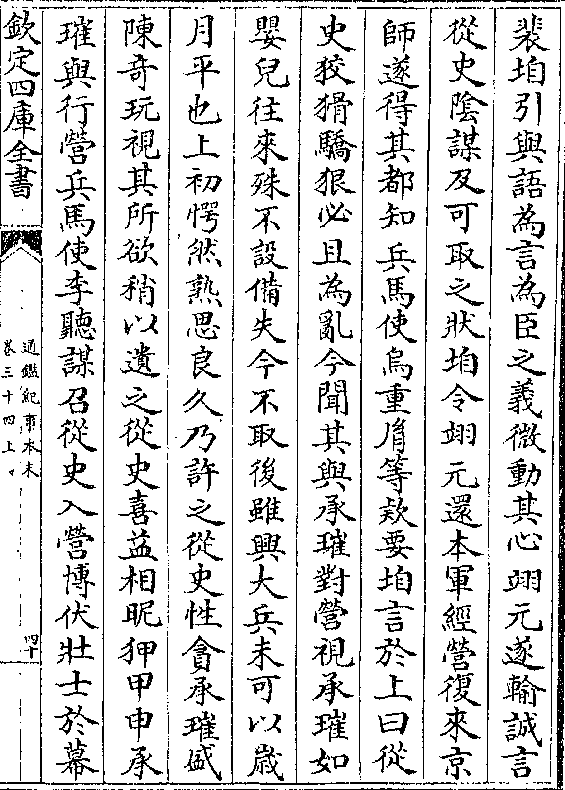 裴垍引與語為言為臣之義微動其心翊元遂輸誠言
從史陰謀及可取之狀垍令翊元還本軍經營復來京
師遂得其都知兵馬使烏重𦙍等欵要垍言於上曰從
史狡猾驕狠必且為亂今聞其與承璀對營視承璀如
嬰兒往來殊不設備失今不取後雖興大兵未可以歲
月平也上初愕然熟思良久乃許之從史性貪承璀盛
陳奇玩視其所欲稍以遺之從史喜益相昵狎甲申承
璀與行營兵馬使李聽謀召從史入營慱伏壯士於幕
欽定四庫全書
通鑑紀事本末
卷三十四上
四十